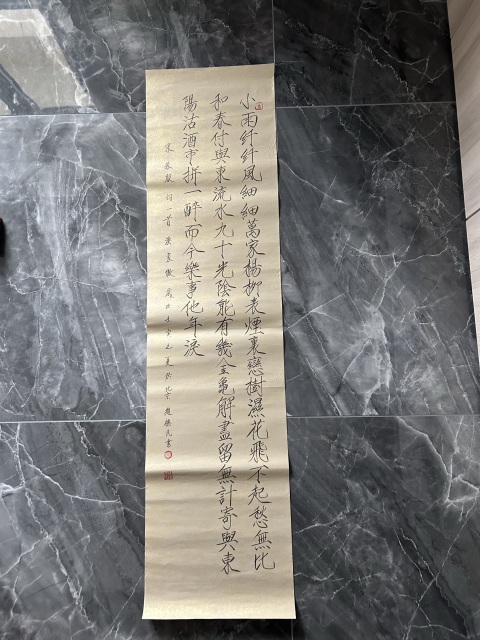 小雨纤纤風細細萬家楊柳青煙裏戀樹濕花飛不起愁無比
和春付與東流水九十光陰能有幾金龜解盡留無計寄與東
陽沽酒市拼一醉而今樂事他年淚
宋朱服詞一首漁家傲之夏於北京書